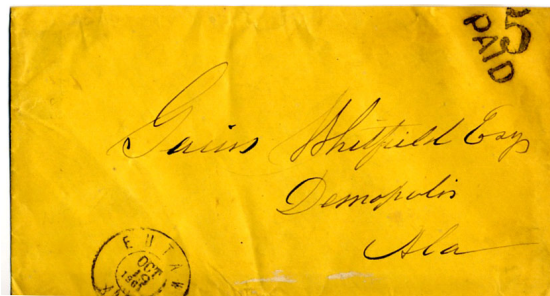 5
PAID
Gaius Whitfield Esq
Demopolis
Ala
EUTAW
OCT
19